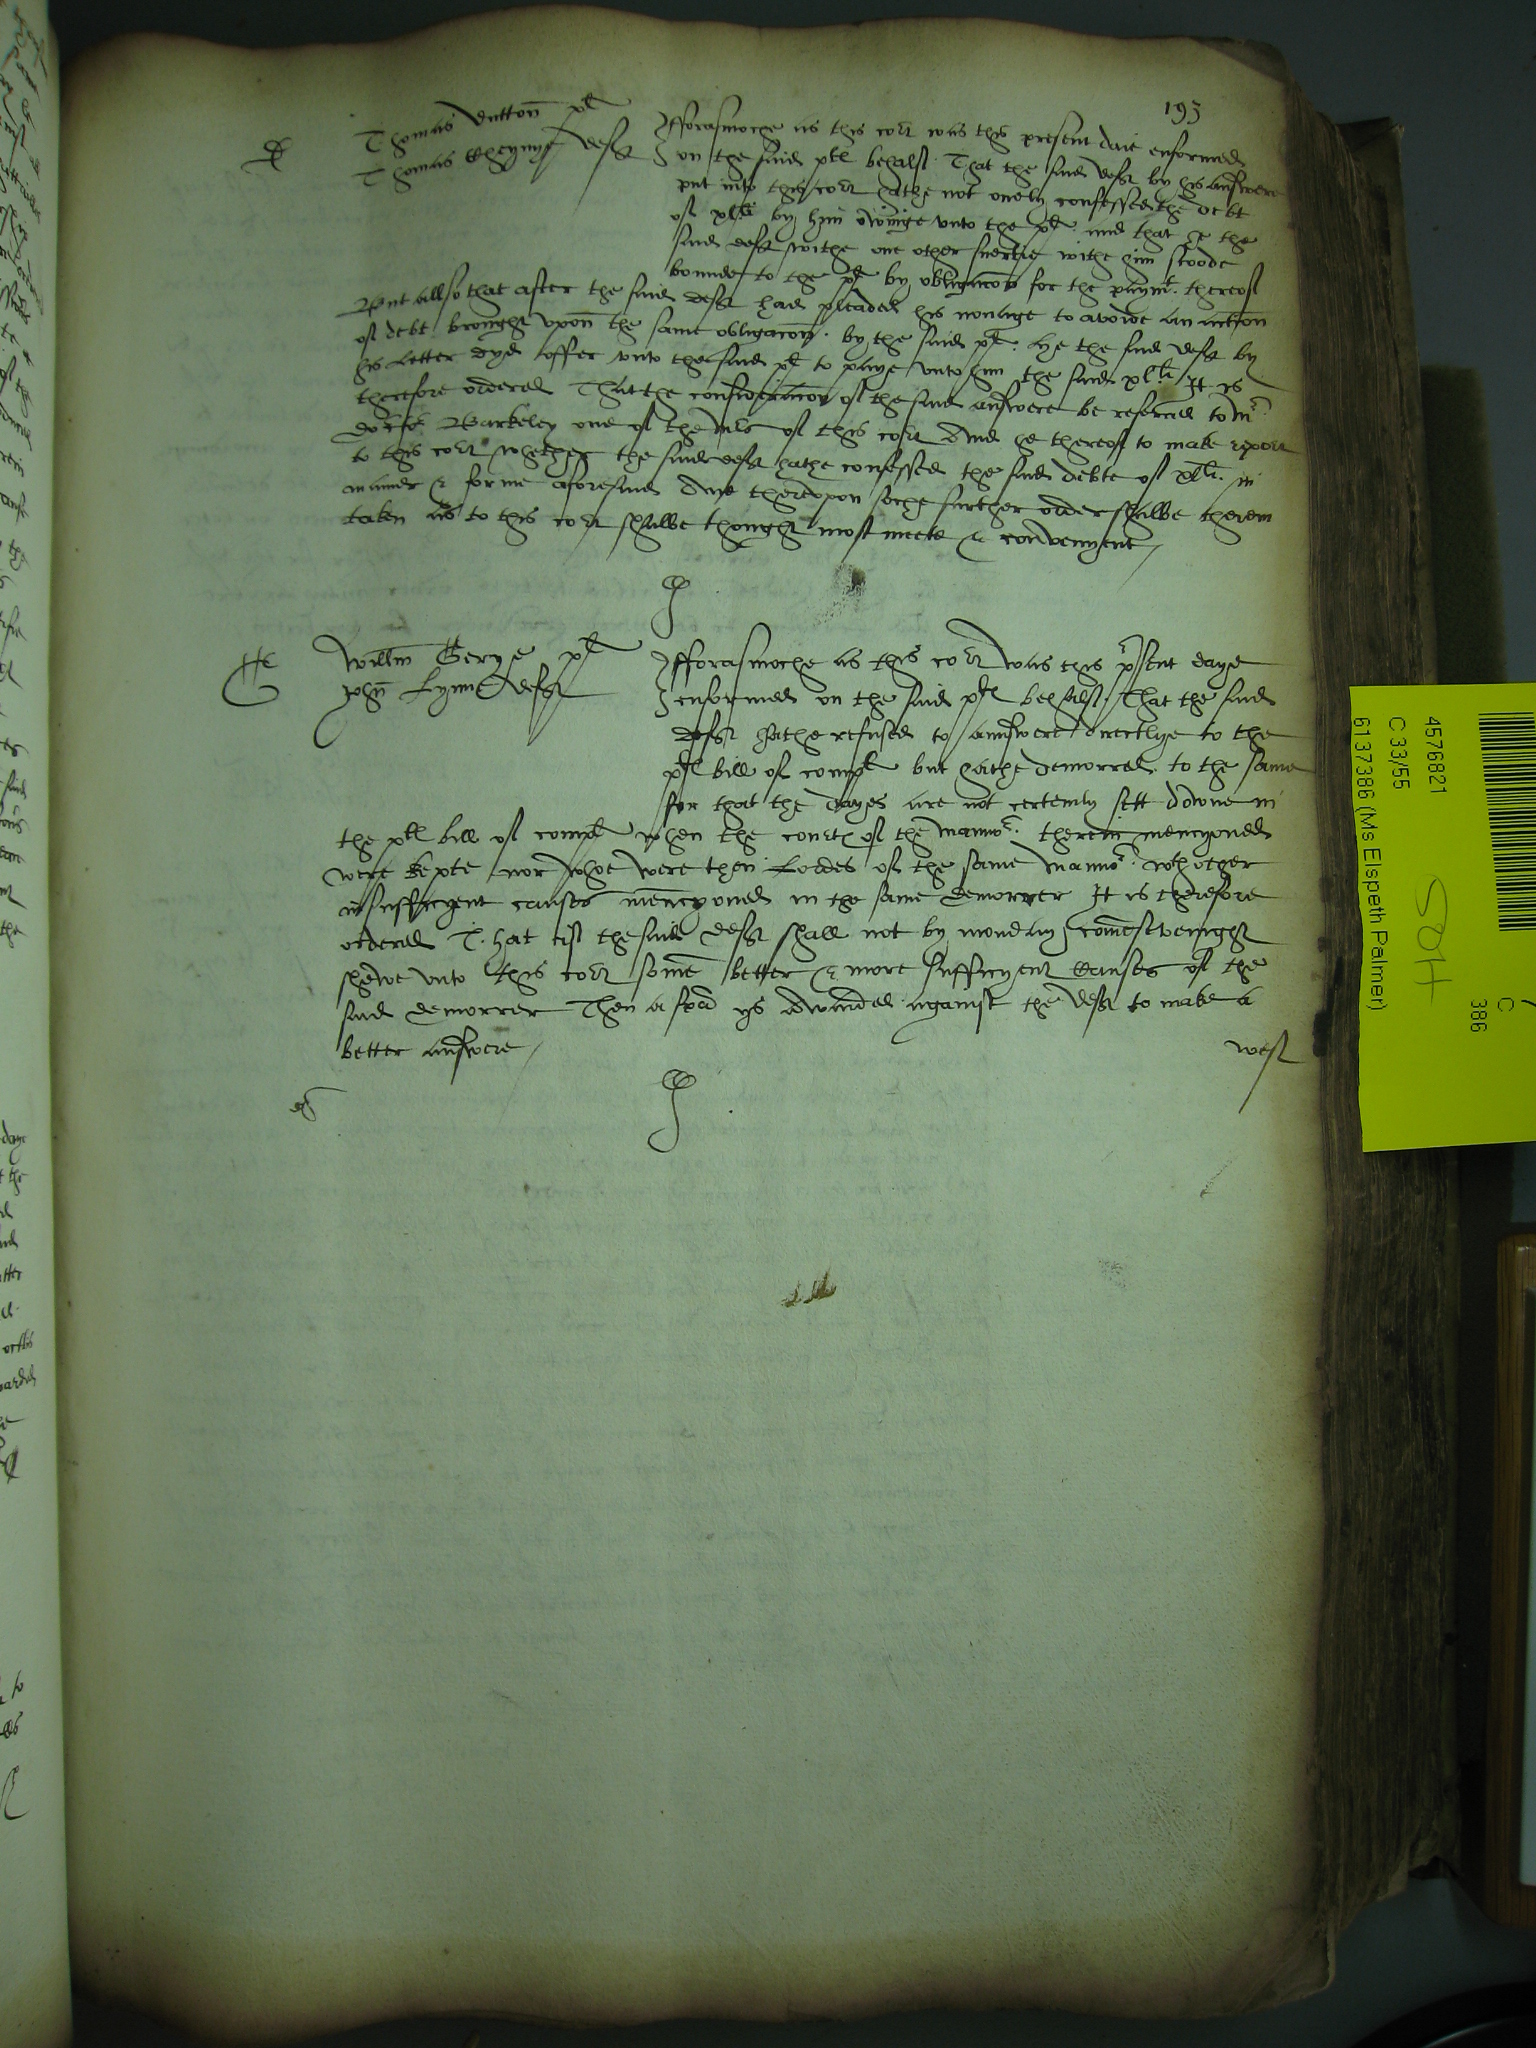 193
Thomas Dutton pl
Thomas Cheyny deft
Fforasmoche as this cort was this present daie enformed
on the said pltes behalf That the said deft by his answere
put into this cort hathe not onely confessed the debt
of xlli by him owinge unto the pl and that he the
said deft withe one other suertie withe him stoode
bounde to the pl by obligacon for the paymt thereof
But allso that after the said deft had pleaded his nonage to avoide an action
of debt brought upon the same obligacon by the said pl. hye the said deft by
his letter dyd offer unto the said pl to paye unto him the said xlli It is
therefore ordered That the consideracon of the said answere be referred to Mr
doctor Barkeley one of the mrs of this cort And he thereof to make report
to this cort whether the said deft hathe confessed the said debte of xlli in
manner & forme aforesaid And thereupon soche further order shalbe therein
taken as to this cort shalbe thought most meete & convenyent
Willm Gerye pl
John Lynne deft
Fforasmoche as this cort was this psent daye
enformed on the said pl behalf, That the said
deft hathe refused to annswere directlye to the
pl bill of compl but hathe demorred to the same
for that the dayes are not certenly sett downe in
the pl bill of compl when the courts of the mannor therein mencyoned
were kepte nor whoe were then Lordes of the same mannor wth other
insufficyent causes mencyoned in the same demorrer It is therefore
ordered That if the said deft shall not by monday come sevenight
shewe unto this cort some better & more sufficyent causes of the
said demorrer Then a spa ys awarded against the deft to make a
better answere
west
4576821
C 33/55
6137386 (Ms Elspeth Palmer)
HOS
C
386